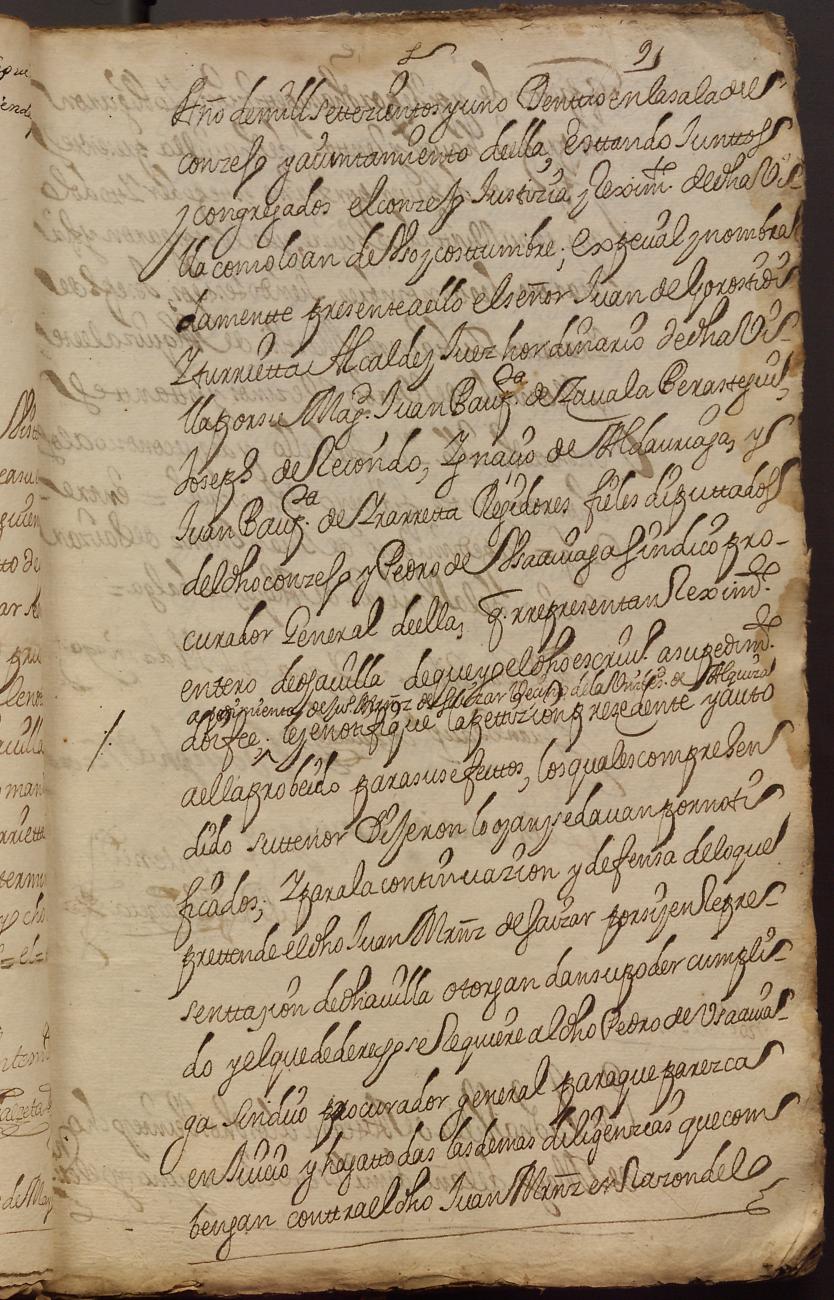 9
Año de mill settezienttos y uno Denttro en la sala del
conzejo y aiuntamiento deella, esttando Junttos
y congregados el conzejo Justizia y Rexim.to de dha Vi
lla como lo an de Vso y costtumbre; expecial y nombra
damentte pressente a ello el señor Juan de Gorostidi
Yturrietta Alcalde y Juez hordinario de dha Vi-
lla por su Mag.d Juan Baup.ta de Zavala Berastegui,
Joseph de Recondo, Ygnaçio de Aldauriaga, y
Juan Baup.ta de Yrarretta Rejidores fieles diputtados
del dho conzejo y Pedro de Vsauiaga sindico pro-
curador General deella, q. rrepresentan Rexim.to
entero de dha uilla de que yo el dho escriu.o a su pedim.to
a pedimiento de Ju.o Mrñz de Saizar vezino de la Villa de Alquiza
doi fee; les notifique la pettizion prezedente y auto
a ella probeido para sus efecttos, los quales comprehen
dido su ttenor Dijeron lo oyan y se dauan por noti
ficados; Y para la continuazion y defensa de lo que
prettende el dho Juan Mrñz de Saizar por si y en Repre
senttazion de dha uilla otorgan dan su poder cumpli-
do y el que de derecho se Requiere al dho Pedro de Vsauia-
ga sindico procurador general para que parezca
en Juicio y haga ttodas las demas diligenzias que com
bengan conttra el dho Juan Mrñz en Razon del